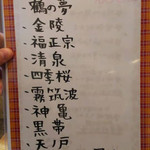 ・鶴の夢
・金陵
・福正宗
・清泉
・四季桜
・霧筑波
・神亀
・黒帯
・天戸